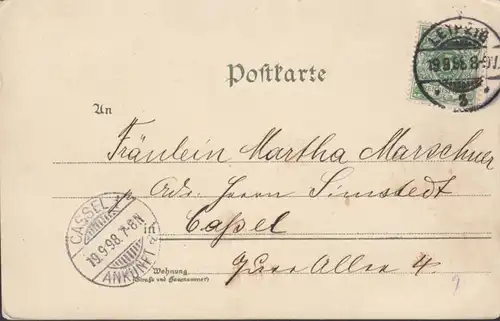 LEIPZIG
19.9.98. 8-9 V.
3
Postkarte
An
Fräulein Martha Marschner
Adr. Herrn Simstedt
in Caßel
CASSEL
19.9.98. 7-8N
ANKUNFT
Wohnung
(Straße und Hausnummer)
Allee 4.